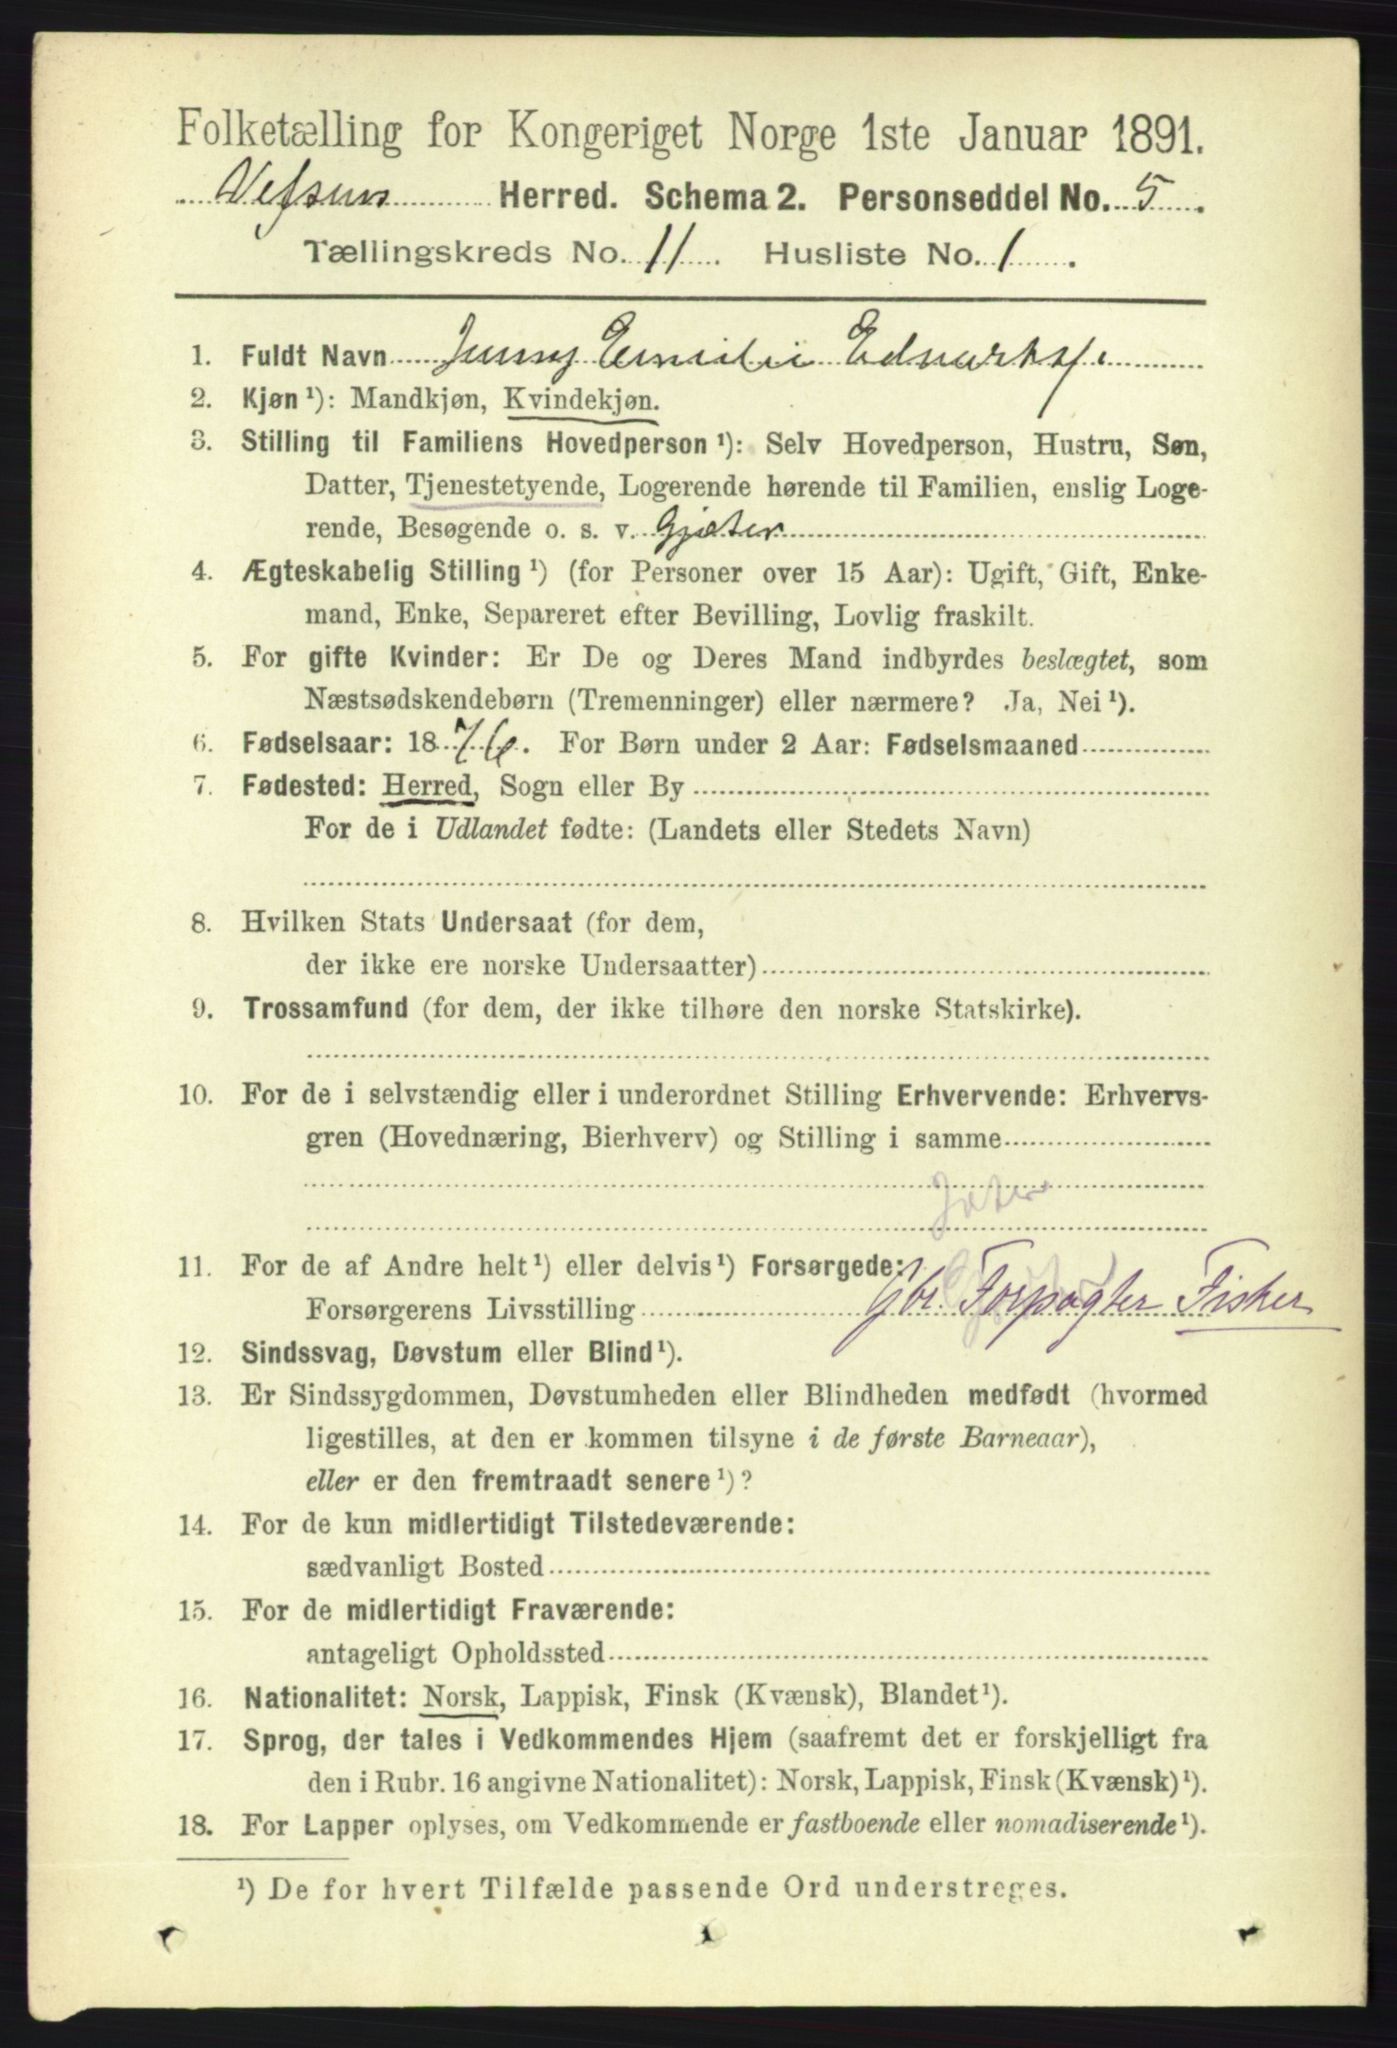 Folketælling for Kongeriget Norge 1ste Januar 1891.
Vefsen Herred. Schema 2. Personseddel No. 5.
Tællingskreds No. 11. Husliste No. 1.
1. Fuldt Navn Jenny Emilie Edvartsf.
2. Kjøn ¹): Mandkjøn, Kvindekjøn.
3. Stilling til Familiens Hovedperson ¹): Selv Hovedperson, Hustru, Søn,
Datter, Tjenestetyende, Logerende hørende til Familien, enslig Loge-
rende, Besøgende o. s. v. Gjæter
4. Ægteskabelig Stilling ¹) (for Personer over 15 Aar): Ugift, Gift, Enke-
mand, Enke, Separeret efter Bevilling, Lovlig fraskilt.
5. For gifte Kvinder: Er De og Deres Mand indbyrdes beslægtet, som
Næstsødskendebørn (Tremenninger) eller nærmere? Ja, Nei ¹).
6. Fødselsaar: 1876. For Børn under 2 Aar: Fødselsmaaned
7. Fødested: Herred, Sogn eller By
For de i Udlandet fødte: (Landets eller Stedets Navn)
8. Hvilken Stats Undersaat (for dem,
der ikke ere norske Undersaatter)
9. Trossamfund (for dem, der ikke tilhøre den norske Statskirke).
10. For de i selvstændig eller i underordnet Stilling Erhvervende: Erhvervs-
gren (Hovednæring, Bierhverv) og Stilling i samme
11. For de af Andre helt ¹) eller delvis ¹) Forsørgede:
Forsørgerens Livsstilling Gbr. Forpagter Fisker
12. Sindssvag, Døvstum eller Blind ¹).
13. Er Sindssygdommen, Døvstumheden eller Blindheden medfødt (hvormed
ligestilles, at den er kommen tilsyne i de første Barneaar),
eller er den fremtraadt senere ¹)?
14. For de kun midlertidigt Tilstedeværende:
sædvanligt Bosted
15. For de midlertidigt Fraværende:
antageligt Opholdssted
16. Nationalitet: Norsk, Lappisk, Finsk (Kvænsk), Blandet ¹).
17. Sprog, der tales i Vedkommendes Hjem (saafremt det er forskjelligt fra
den i Rubr. 16 angivne Nationalitet): Norsk, Lappisk, Finsk (Kvænsk) ¹).
18. For Lapper oplyses, om Vedkommende er fastboende eller nomadiserende ¹).
¹) De for hvert Tilfælde passende Ord understreges.